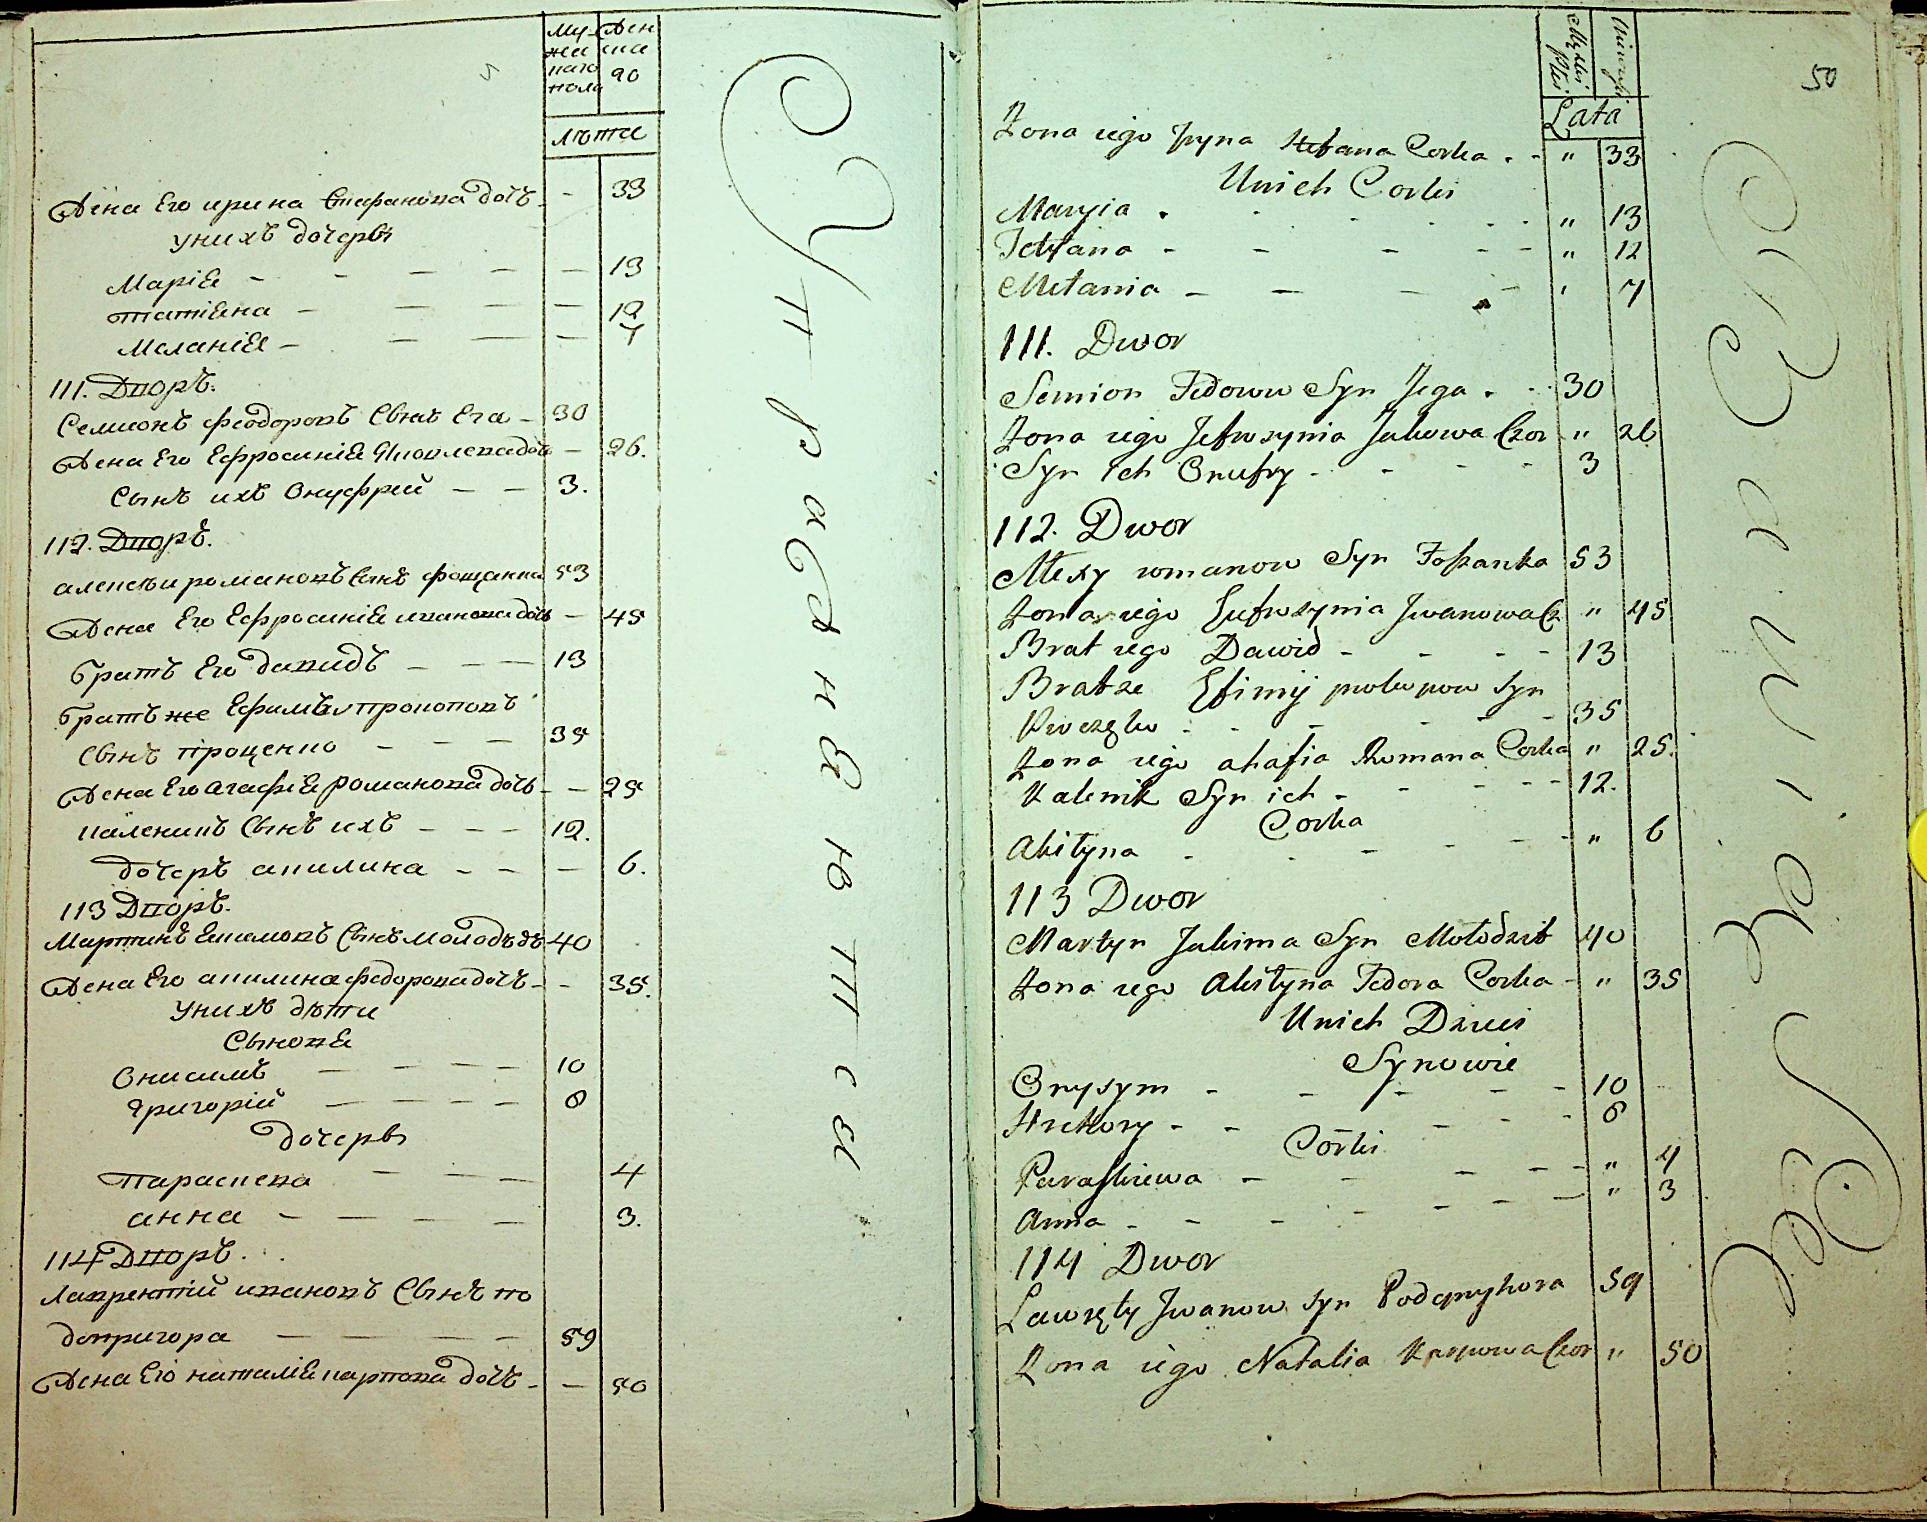 Му-
жес
каго
пола
Жен
ска
90
лѣта
Жена Его ирина Стефанова дочь - - 33
у нихъ дочеры
Маріѣ - - - - - 13
татіѣна - - - - 12
Меланіѣ - - - - 7
111. Дворъ.
Семионъ феодоровъ Сынъ Ега - 30
Жена Его Ефросиніѣ Яковлева доч - 26.
Сынъ ихъ Онуфрей - - 3.
112. Дворъ.
алексѣи романовъ Сынъ фощанка 53
Жена Его Ефросиніѣ иванова дочь - 45
братъ Его давидъ - - - 13
братъ же Ефимъ прокоповъ
Сынъ проценко - - - 35
Жена Его агафіѣ романова дочь - - 25
каленикъ Сынъ ихъ - - - 12.
дочеръ акилина - - - 6.
113 Дворъ.
Мартинъ Екимовъ Сынъ молодъдъ 40
Жена Его акилина федорова дочъ - - 35.
у нихъ дѣти
Сыновѣ
Онисимъ - - - - 10
Григорій - - - - 8
дочеры
параскева - - - 4
анна - - - - 3.
114 Дворъ.
Лаврентій ивановъ Сынъ по
допригора - - - - 59
Жена Его наталіѣ карпова дочъ - - 50
Упраждняютса
50
Męzkiei
Płci
Lata
Zona iego Iryna Stefana Corka . - " 33
Unich Corki
Maryia . - - - - " 13
Tetiana - - - - - " 12
Mełania - - - - ' 7
111. Dwor
Semion Fedorow Syn Jega . - - 30
Zona iego Jefrosynia Jakowa Czor - " 26
Syn ich Onufry - - - - 3
112. Dwor
Ałexy romanow Syn Foszanka 53
Zona iego Eufrosynia Jwanowa Cz " 45
Brat iego Dawid - - - - 13
Brat ze Efimij prokopow Syn
Procęko - - - - - 35
Zona iego ahafia Romana Corka " 25.
Kalenik Syn ich - - - - 12.
Corka
Akiłyna - - - - - " 6
113 Dwor
Martyn Jakima Syn Mołodzib 40
Zona iego Akiłyna Fedora Corka - " 35
Unich Dzieci
Synowie
Onysym - - - - - 10
Hrehory - - - - - 8
Corki
Paraskiewa - - - - - " 4
Anna - - - - - - " 3
114 Dwor
Lawręty Jwanow syn Podopryhora 59
Zona iego Natalia Karpowa Czor " 50